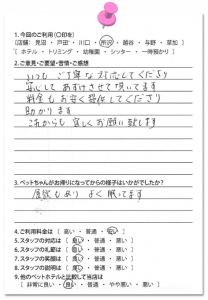 1.今回のご利用(〇印を)
[店舗： 見沼 ・ 戸田 ・ 川口 ・ 所沢 ・ 越谷 ・ 与野 ・ 草加 ]
[ ホテル ・ トリミング ・ 幼稚園 ・ シッター ・ 一時預かり ]
2.ご意見・ご要望・苦情・ご感想
いつも ご丁寧な対応してくださり
安心して あずけさせて頂いてます
料金もお安く提供してくださり
助かります
これからも 宜しくお願い致します
3.ペットちゃんがお帰りになってからの様子はいかがでしたか?
食欲もあり よく眠ってます
4.ご利用料金は [ 高い ・ 普通 ・ 安い ]
5.スタッフの対応は [ 良い ・ 普通 ・ 悪い ]
6.スタッフの礼節は [ 良い ・ 普通 ・ 悪い ]
7.スタッフの笑顔は [ 良い ・ 普通 ・ 悪い ]
8.スタッフの説明は [ 良い ・ 普通 ・ 悪い ]
9.他のペットホテルと比較して当店は
[ 非常に良い ・ 良い ・ 普通 ・ やや悪い ・ 悪い ]